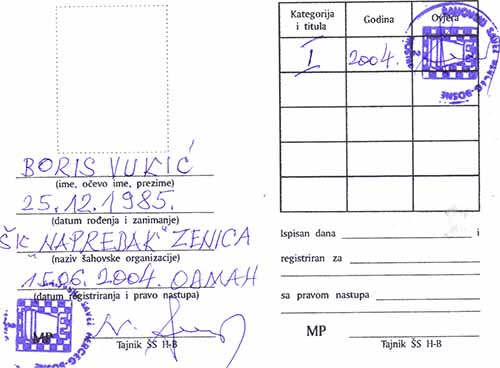 BORIS VUKIĆ
(ime, očevo ime, prezime)
25.12.1985.
(datum rođenja i zanimanje)
ŠK "NAPREDAK" ZENICA
(naziv šahovske organizacije)
15.06.2004. ODMAH
(datum registriranja i pravo nastupa)
MP
Tajnik ŠS H-B
Kategorija i titula
Godina
Ovjera
I
2004.
ŠAHOVSKI SAVEZ HERCEG-BOSNE
Ispisan dana i
registriran za
sa pravom nastupa
MP
Tajnik ŠS H-B